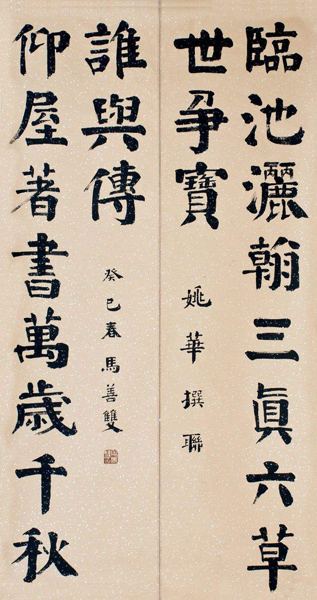 臨池灑翰三眞六草
世爭寶
姚華撰聯
仰屋著書萬歲千秋
誰與傳
癸巳春馬善雙